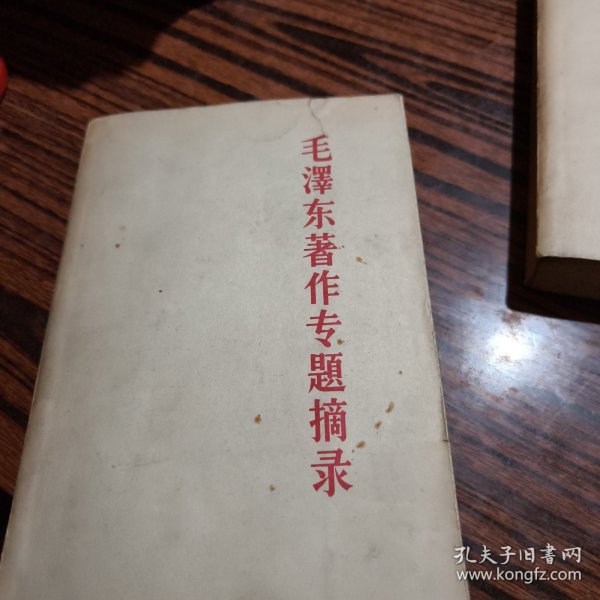 毛澤东著作专題摘录
孔夫子旧書网
www.kongfz.com